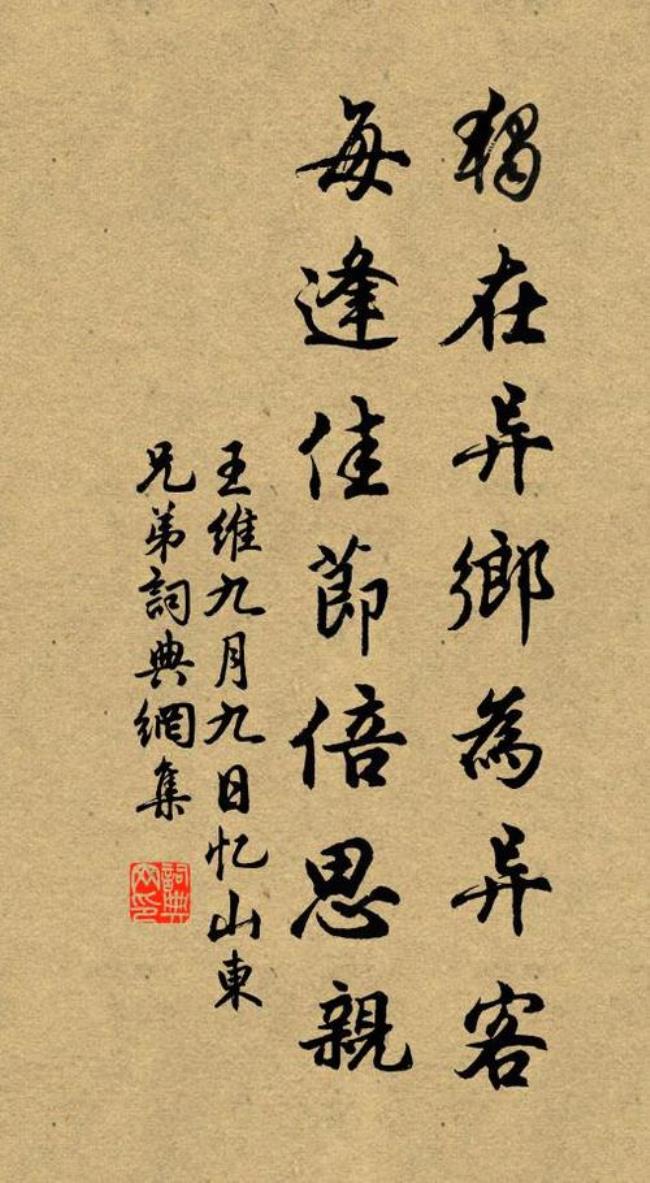 獨在异鄉為异客
每逢佳節倍思親
王維九月九日忆山東
兄弟詞典網集
詞典網印